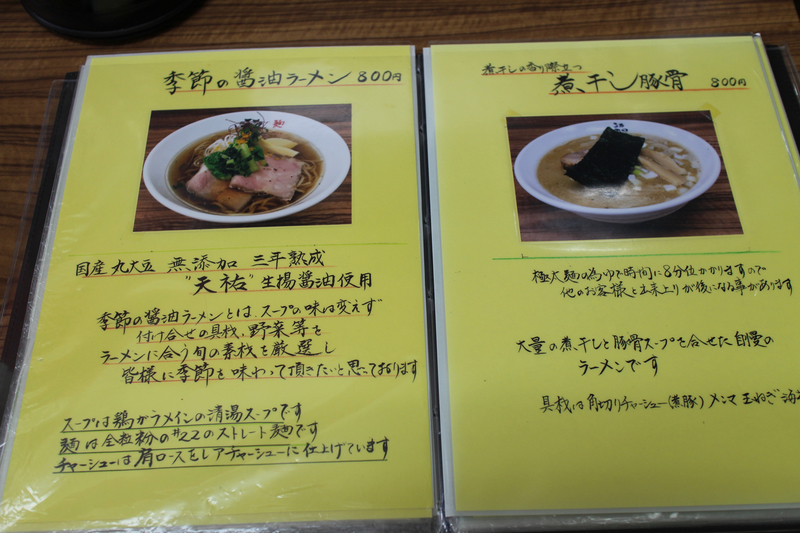 季節の醤油ラーメン 800円
国産 丸大豆 無添加 三年熟成
"天祐"生揚醤油使用
季節の醤油ラーメンとは、スープの味は変えず
付け合せの具材、野菜等を
ラーメンに合う旬の素材を厳選し
皆様に季節を味わって頂きたいと思っております
スープは鶏がラメインの清湯スープです
麺は全粒粉の#22のストレート麺です
チャーシューは肩ロースをレアチャーシューに仕上げています
煮干しの香り際立つ
煮干し豚骨 800円
極太麺の為ゆで時間に8分位かかりますので
他のお客様と出来上りが後になる事があります
大量の煮干しと豚骨スープを合せた自慢の
ラーメンです
具材は角切りチャーシュー(煮豚)メンマ 玉ねぎ 海